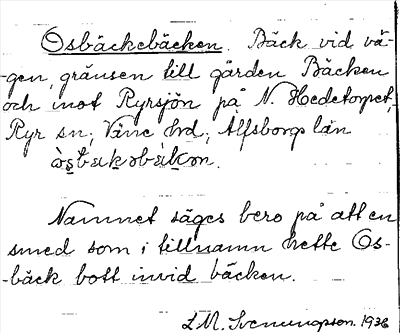 Osbäckebäcken. Bäck vid vä-
gen, gränsen till gården Bäcken
och inot Ryrsjön på N. Hedetorpet,
Ryr sn; Väne hrd; Älfsborgs län
Namnet säges bero på att en
smed som i tillnamn hette Os-
-bäck bott invid bäcken.
L M. Svenungsson. 1936